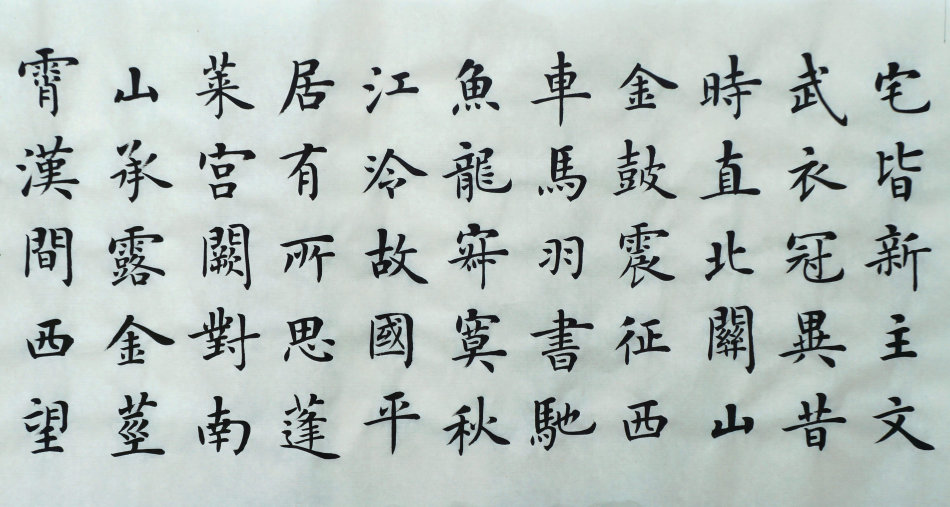 宅皆新主文
武衣冠異昔
時直北關山
金鼓震征西
車馬羽書馳
魚龍寂寞秋
江冷故國平
居有所思蓬
萊宮闕對南
山承露金莖
霄漢間西望